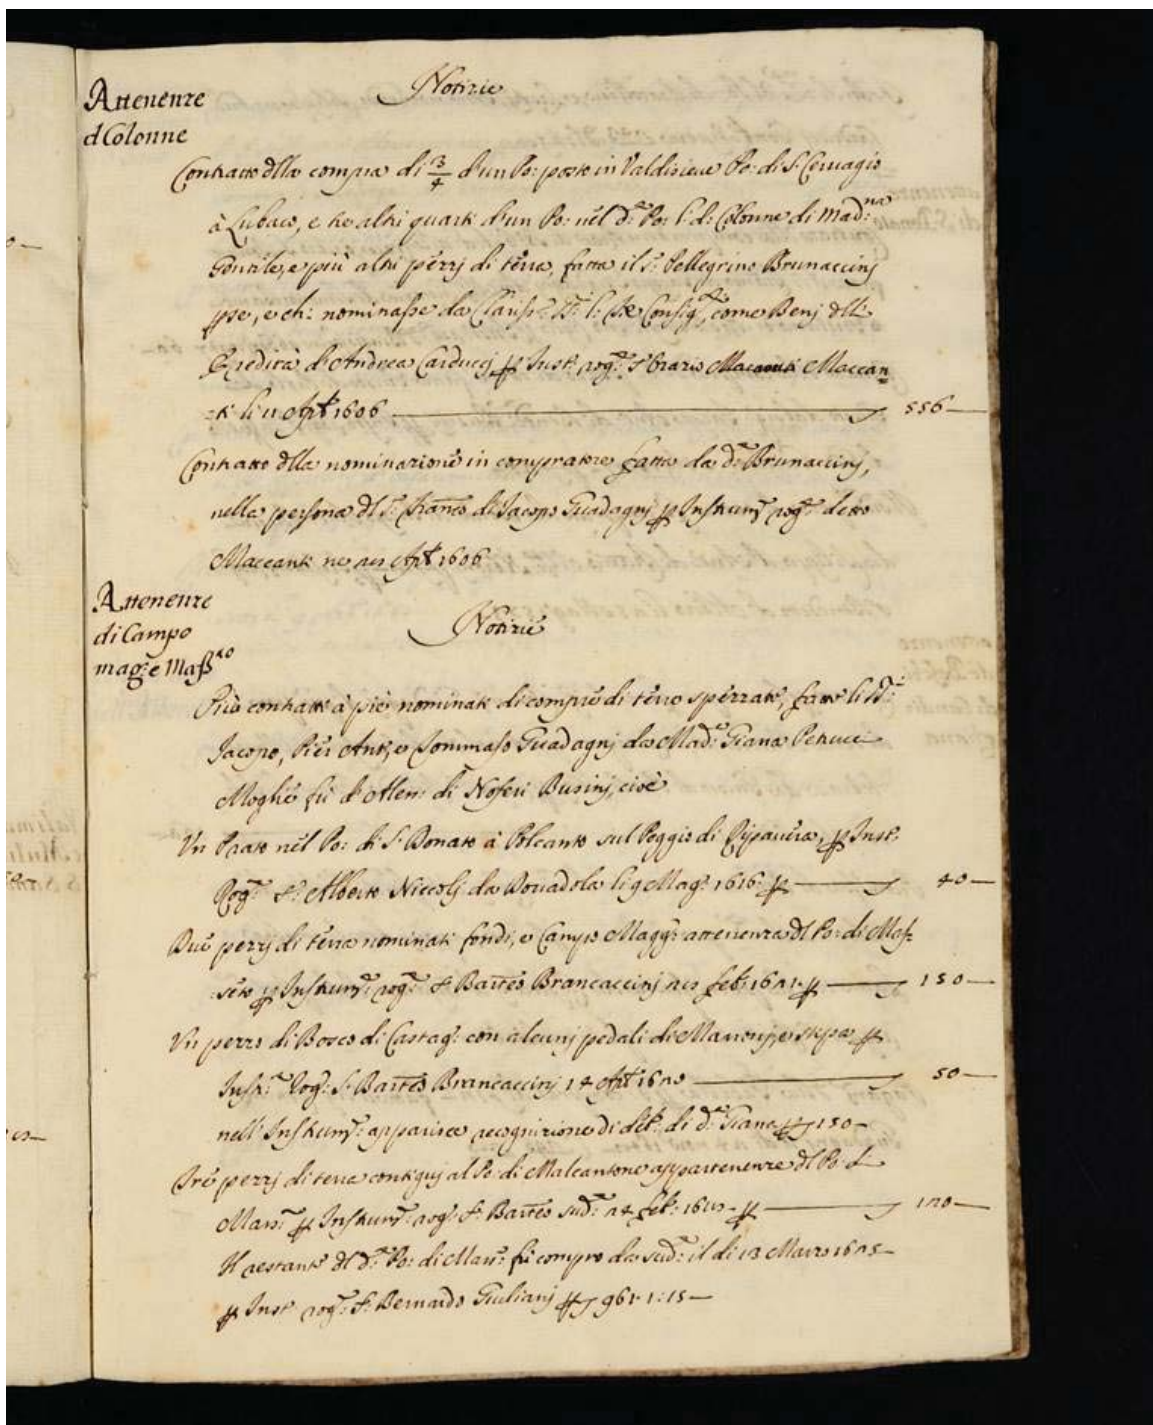 Attenenze
d Colonne
Notizie
Contratto dlla compra di 3/4 d'un Po: posto in Valdisieve Po: di S. Cervagio
à Lubaco, e tre altri quarti d'un Po: nel d.º Po: l: d: Colonne di Mad:na
Gentile, e più altri pezzj di terra, fatta il S.r Pellegrino Brunaccinj
pse, e ch: nominasse da Consig.ri, come Benj dll:
Eredità di Andrea Carduccj p Inst: rog.º S. Orazio Maccan=
=ti li 11 Aple 1606 556
Contratto dlla nominazione in compratore fatta da d.º Brunaccinj,
nella persona dl S.r Franc.º di Jacopo Guadagnj p Instrum.º rog.º detto
Maccanti ne 22 Aple 1606
Attenenze
di Campo
mag:e Mass:to
Notizie
Più contratti à piè nominati di compre di terre spezzate, fatte li SS:ri
Jacopo, Pier Ant.º, e Tommaso Guadagnj da Mad:a Giana Petrucci
Moglie fù di Aless: di Noferi Businj, cioè
Un Prato nel Po: di S. Donato à Polcanto sul Poggio di Ripavera, p Inst:
Rog.º S. Alberto Niccolj da Dovadola li 9 Mag.º 1616: p 40
Due pezzj di terra nominati fondi, e Campo Magg:e attenenza dl Po: di Mas=
=seto p Instrum.º rog.º S. Bart.eo Brancaccinj 22 Feb: 1621: p 150
Un pezzo di Bosco di Castag: con alcunj pedali di Marronj, e stipa p
Instr.º Rog.º S. Bart.eo Brancaccinj 14 Aple 1622 50
nell'Instrum.º apparisce recognizione di deb.º di d.a Giana p 150
Tre pezzj di terra contiguj al Po: di Malcantone appartenenze dl Po: d:
Mass.º p Instrum.º rog.º S. Bart.eo sud.º 24 Feb: 1622 p 120
Il restante dl d.º Po: di Mass.º fù compro da sud.a il dì 13 Marzo 1625
p Inst.º rog.º S. Bernardo Giulianj p 961: 1: 15